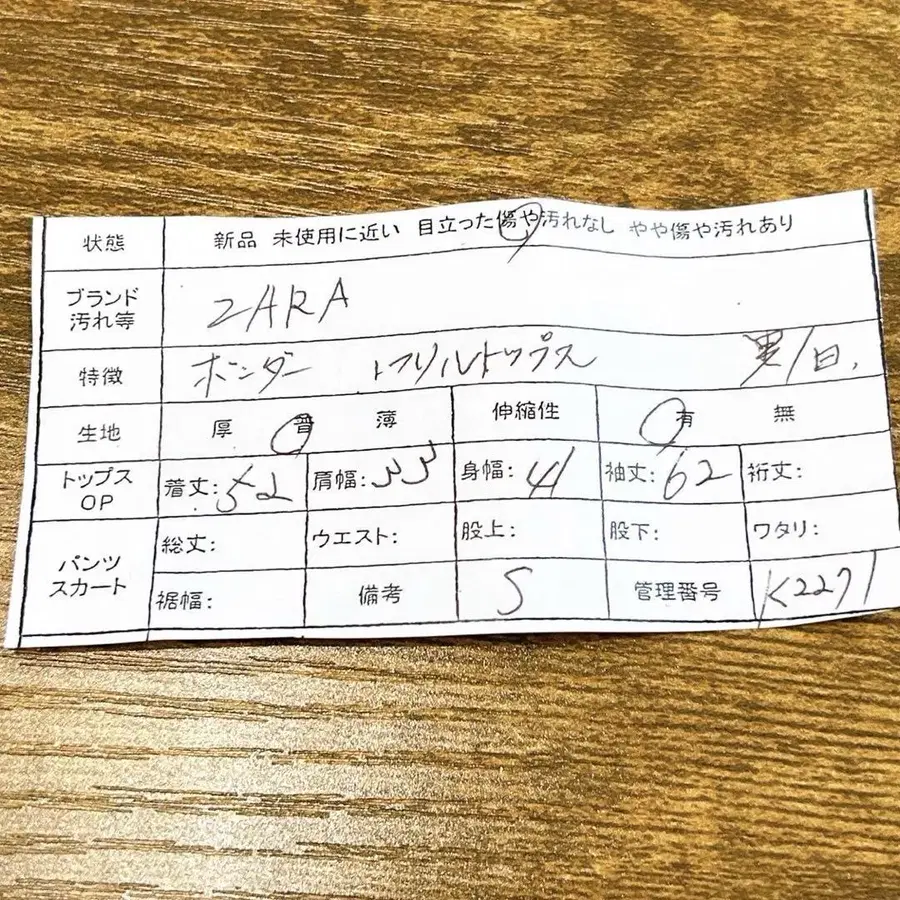 状態 新品 未使用に近い 目立った傷や汚れなし やや傷や汚れあり
ブランド ZARA
汚れ等
特徴 ボーダー フリルトップス 黒/白.
生地 厚 普 薄 伸縮性 有 無
トップス 着丈:52 肩幅:33 身幅:41 袖丈:62 裄丈:
OP
パンツ 総丈: ウエスト: 股上: 股下: ワタリ:
スカート 裾幅: 備考 S 管理番号 K2271